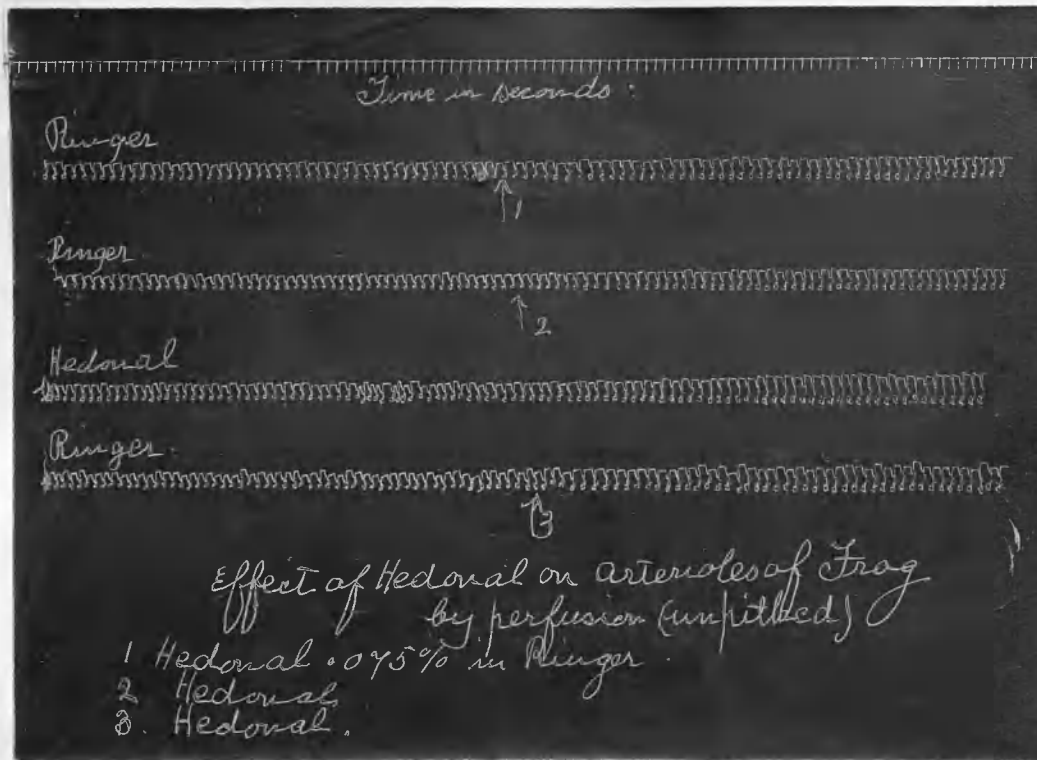 Time in seconds:
Ringer
1
Ringer
2
Hedonal
Ringer.
3
Effect of Hedonal on arterioles of Frog
by perfusion (unpithed)
1 Hedonal .075% in Ringer.
2 Hedonal
3. Hedonal.